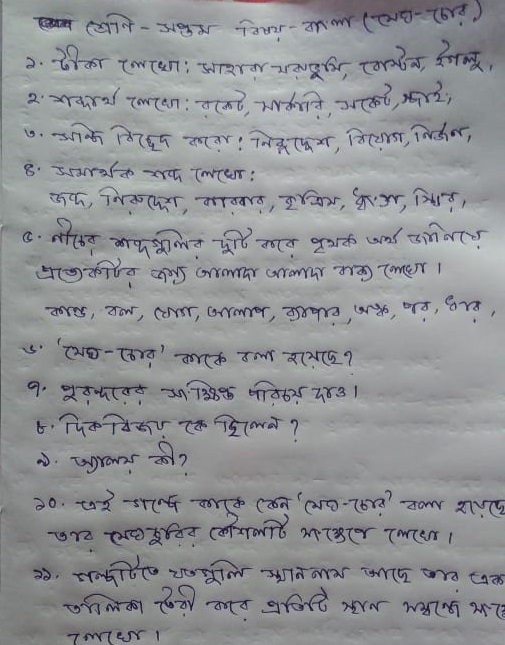 শ্রেণি - সপ্তম বিষয় - বাংলা (মেঘ-চোর)
১. টীকা লেখো: সাহারা মরুভূমি, বোস্টন, ইগলু,
২. শব্দার্থ লেখো: রকেট, মার্কারি, পকেট,
৩. সন্ধি বিচ্ছেদ করো: নিরুদ্দেশ, বিয়োগ, নির্জন,
৪. সমার্থক শব্দ লেখো:
জব্দ, নিরুদ্দেশ, কারবার, কৃত্রিম, ধ্বংস, স্থির,
৫. নীচের শব্দগুলির দুটি করে পৃথক অর্থ জানিয়ে
প্রত্যেকটির জন্য আলাদা আলাদা বাক্য লেখো।
কাণ্ড, বল, যোগ, আলাপ, ব্যাপার, অঙ্ক, পর, ধার,
৬. 'মেঘ-চোর' কাকে বলা হয়েছে?
৭. পুরন্দরের সংক্ষিপ্ত পরিচয় দাও।
৮. দিকবিজয় কে ছিলেন?
৯. অ্যালয় কী?
১০. এই গল্পে কাকে কেন 'মেঘ-চোর' বলা হয়েছে
তার মেঘচুরির কৌশলটি সংক্ষেপে লেখো।
১১. গল্পটিতে যতগুলি স্থাননাম আছে তার এক
তালিকা তৈরী করে প্রতিটি স্থান সম্বন্ধে
লেখো।